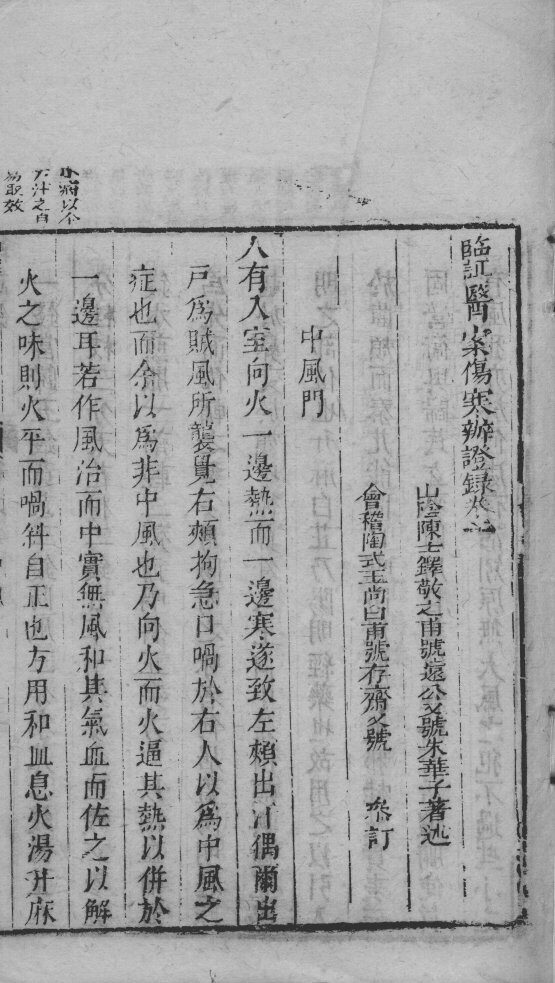 臨証醫案傷寒辦證録卷之
山陰陳士鐸敬之甫號遠公又號朱華子著述
會稽陶式玉尚白甫號存齋又號 叅訂
中風門
人有入室向火一邊熱而一邊寒遂致左頰出汗偶爾出
戸爲賊風所襲覺右頰拘急口喎於右人以爲中風之
症也而余以爲非中風也乃向火而火逼其熱以併於
一邊耳若作風治而中實無風和其氣血而佐之以解
火之味則火平而喎斜自正也方用和血息火湯升麻